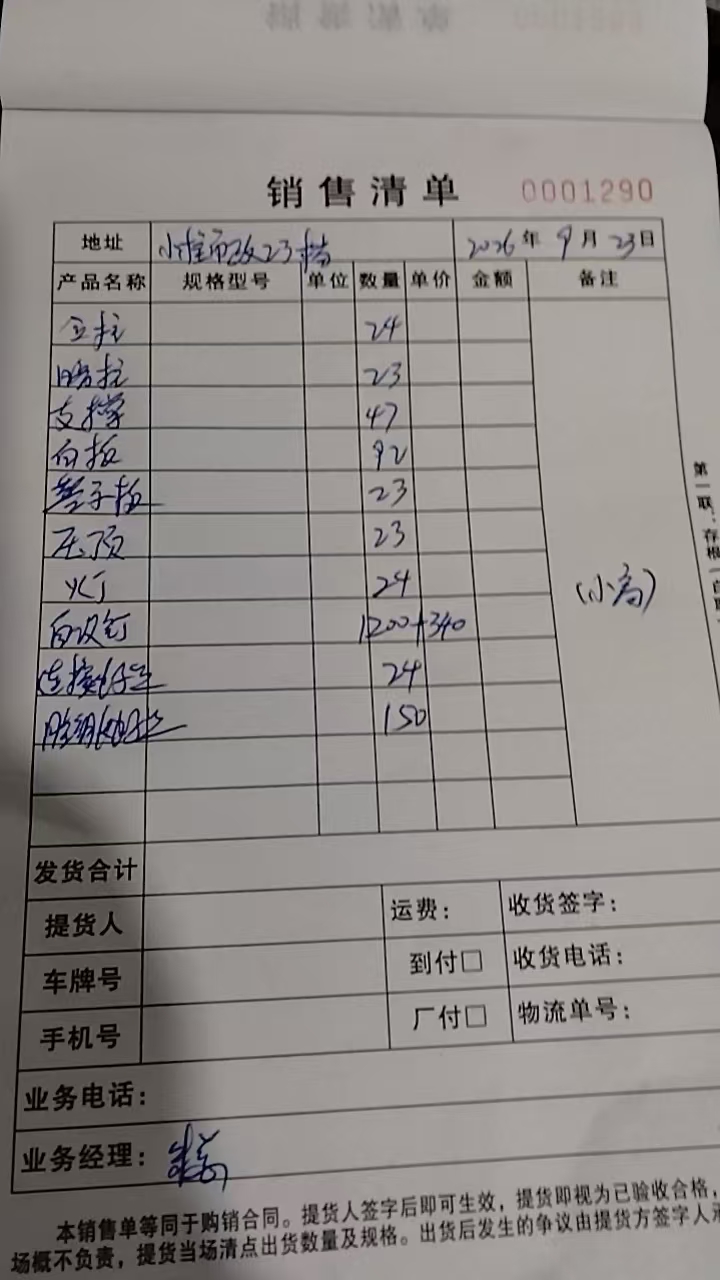 销售清单 0001290
地址 小推市政23档 2026年9月23日
产品名称 规格型号 单位 数量 单价 金额 备注
立柱 24
暗柱 23
支撑 47
白板 92
垫子板 23
压顶 23
火丁 24
自攻钉 1200+340
连接 24
膨胀 150
(小高)
发货合计
提货人 运费: 收货签字:
车牌号 到付□ 收货电话:
手机号 厂付□ 物流单号:
业务电话:
业务经理:
本销售单等同于购销合同。提货人签字后即可生效，提货即视为已验收合格，
场概不负责，提货当场清点出货数量及规格。出货后发生的争议由提货方签字人承
第一联:存根